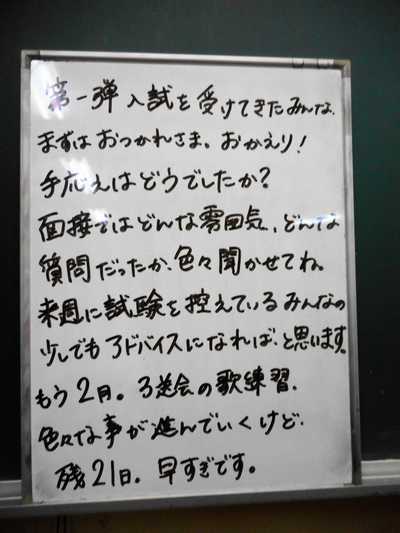 第一弾入試を受けてきたみんな、
まずはおつかれさま。おかえり!
手応えはどうでしたか?
面接ではどんな雰囲気、どんな
質問だったか、色々聞かせてね。
来週に試験を控えているみんなの
少しでもアドバイスになれば、と思います。
もう2月。3送会の歌練習、
色々な事が進んでいくけど、
残21日。早すぎです。